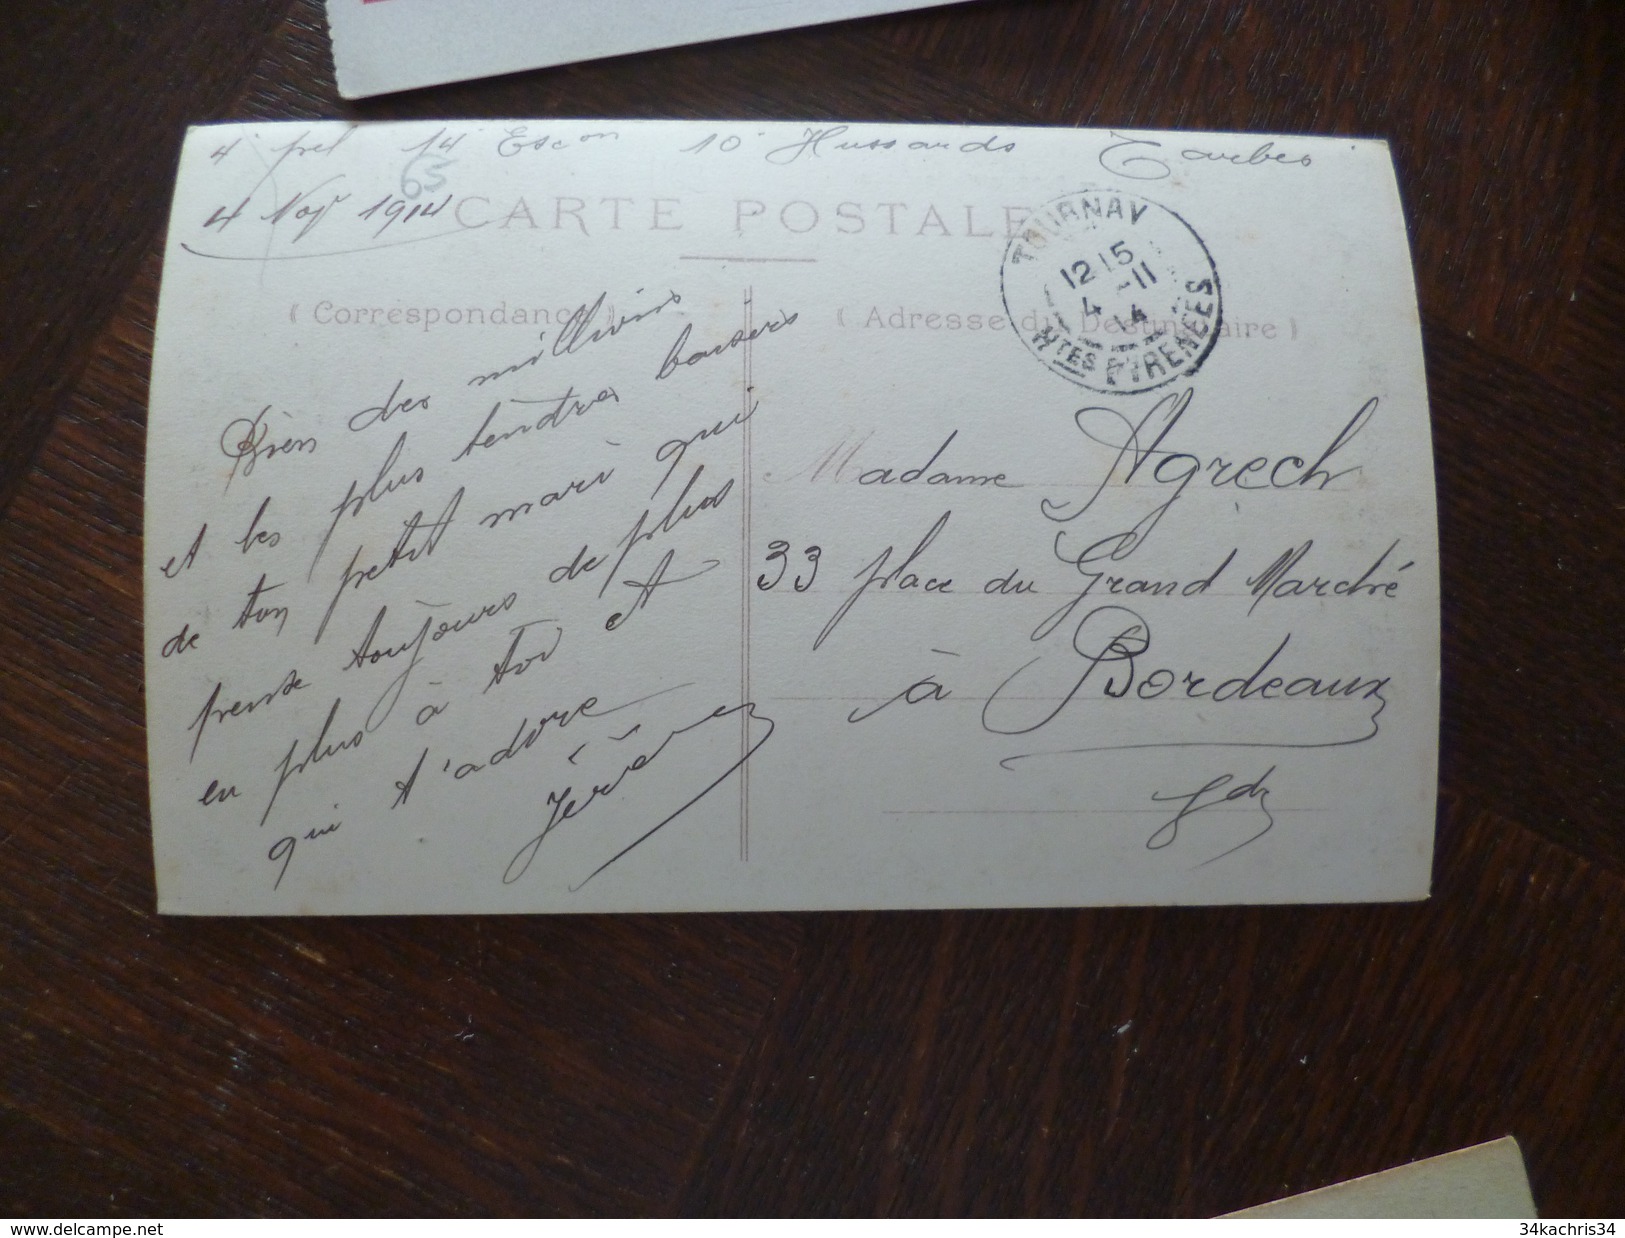 4e pel 14e Escon 10e Hussards Tarbes
4 Nov 1914
65
CARTE POSTALE
TOURNAY
12 15
4 -11
14
HTES PYRENEES
( Correspondance )
Bien des millions
et les plus tendres baisers
de ton petit mari qui
pense toujours de plus
en plus à toi et
qui t'adore
( Adresse du Destinataire )
Madame Agrech
33 place du Grand Marché
à Bordeaux
Gde
34kachris34
www.delcampe.net